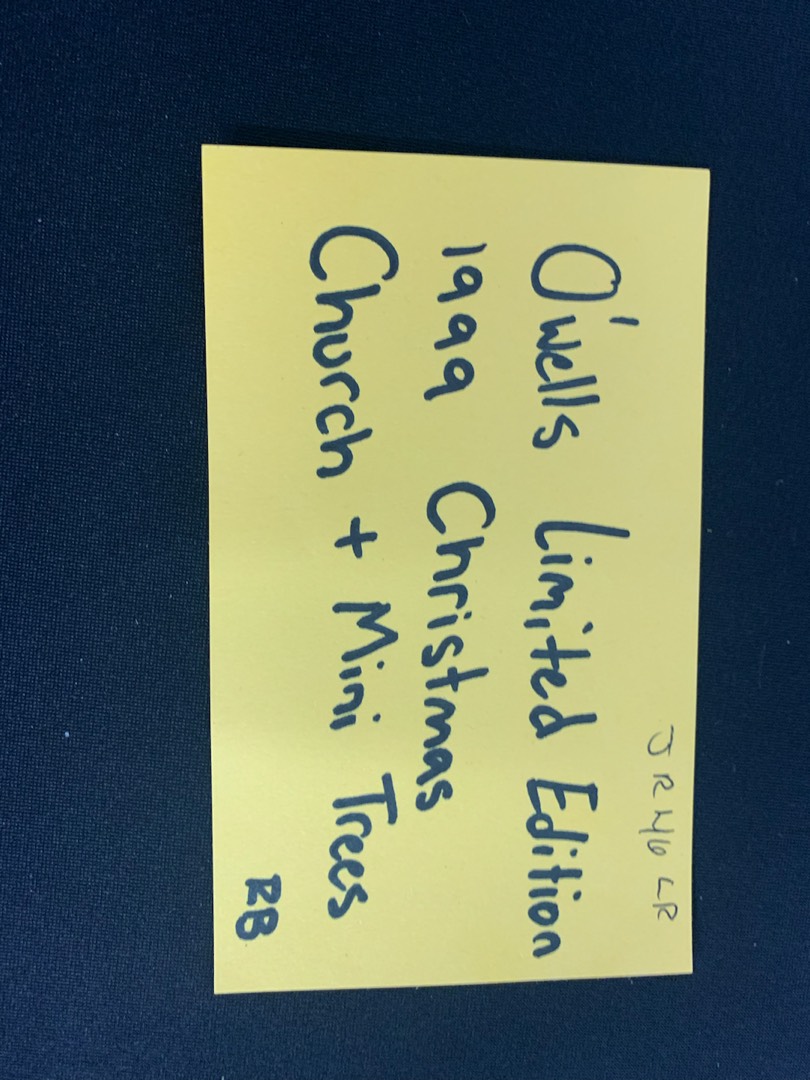 JR416 LR
O'wells Limited Edition
1999 Christmas
Church + Mini Trees
RB